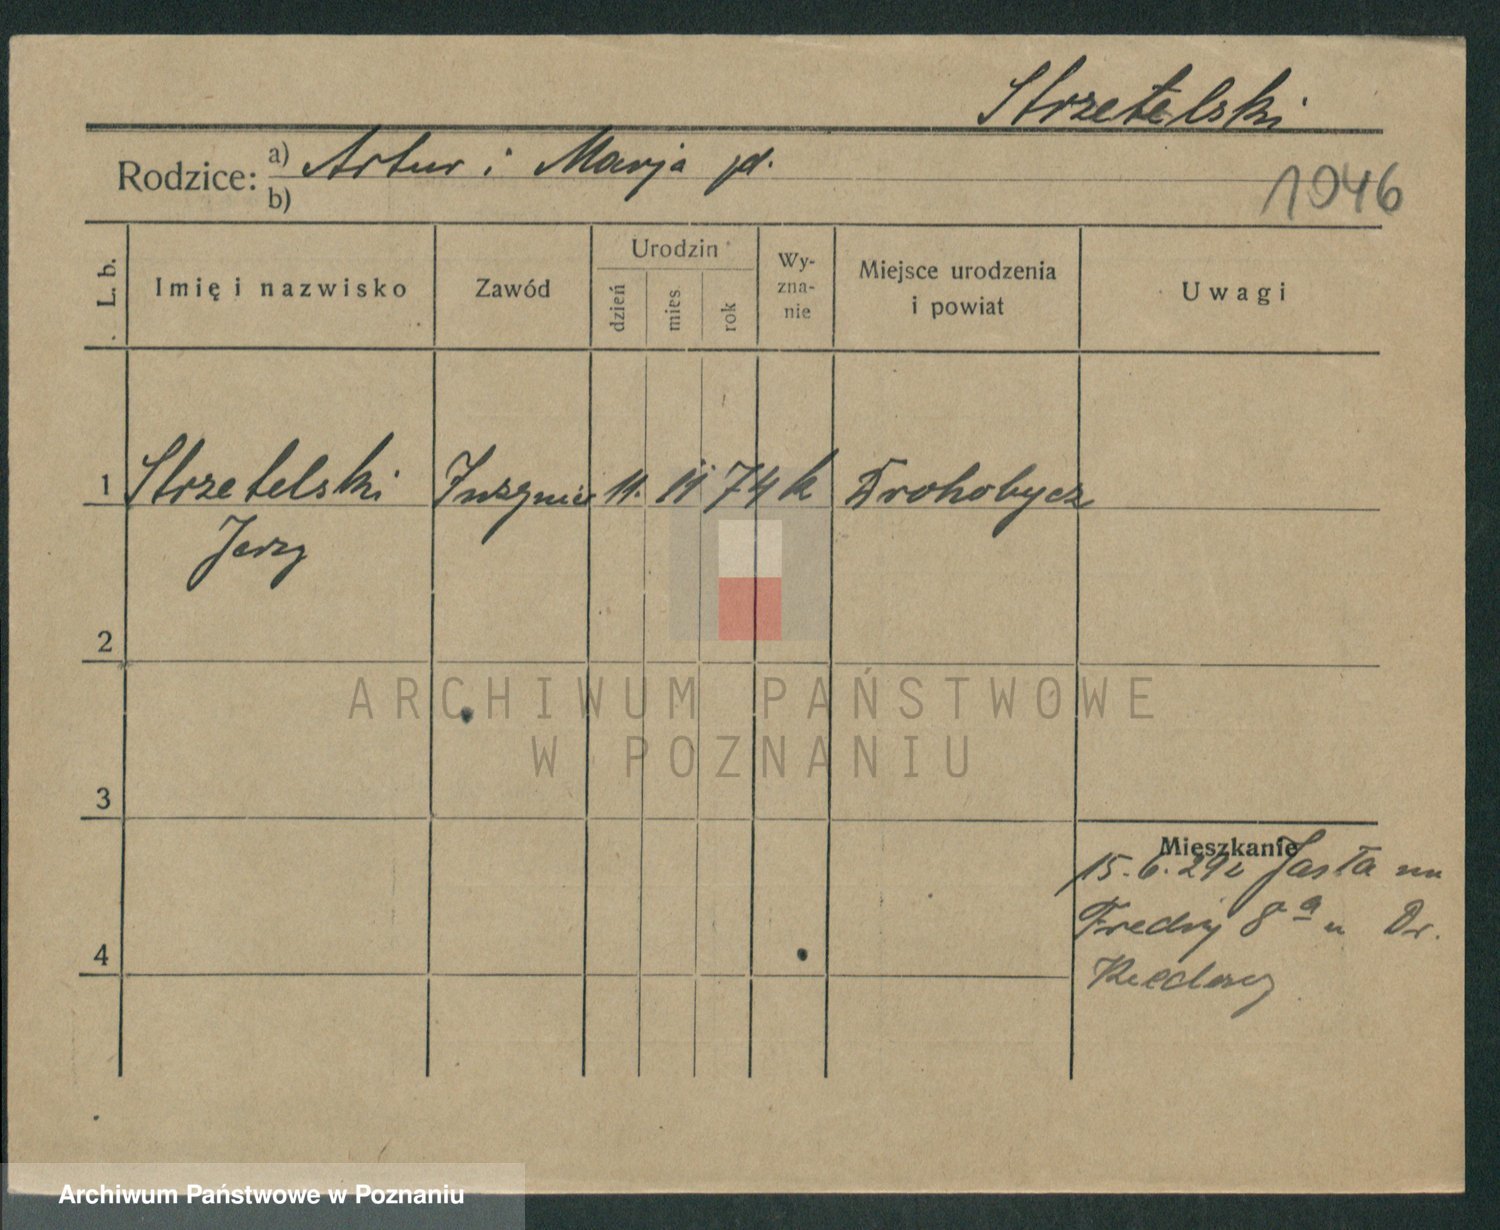 Strzetelski
Rodzice: a) Artur i Marja
b)
1946
L. b.
Imię i nazwisko
Zawód
Urodzin
dzień
mies.
rok
Wy-
zna-
nie
Miejsce urodzenia
i powiat
Uwagi
1 Strzetelski Inżynier 11. 11 74 k Drohobycz
Jerzy
2
ARCHIWUM PAŃSTWOWE
W POZNANIU
3
Mieszkanie
15.6.29 z Jasła na
Fredry 8 a u Dr.
4
Archiwum Państwowe w Poznaniu